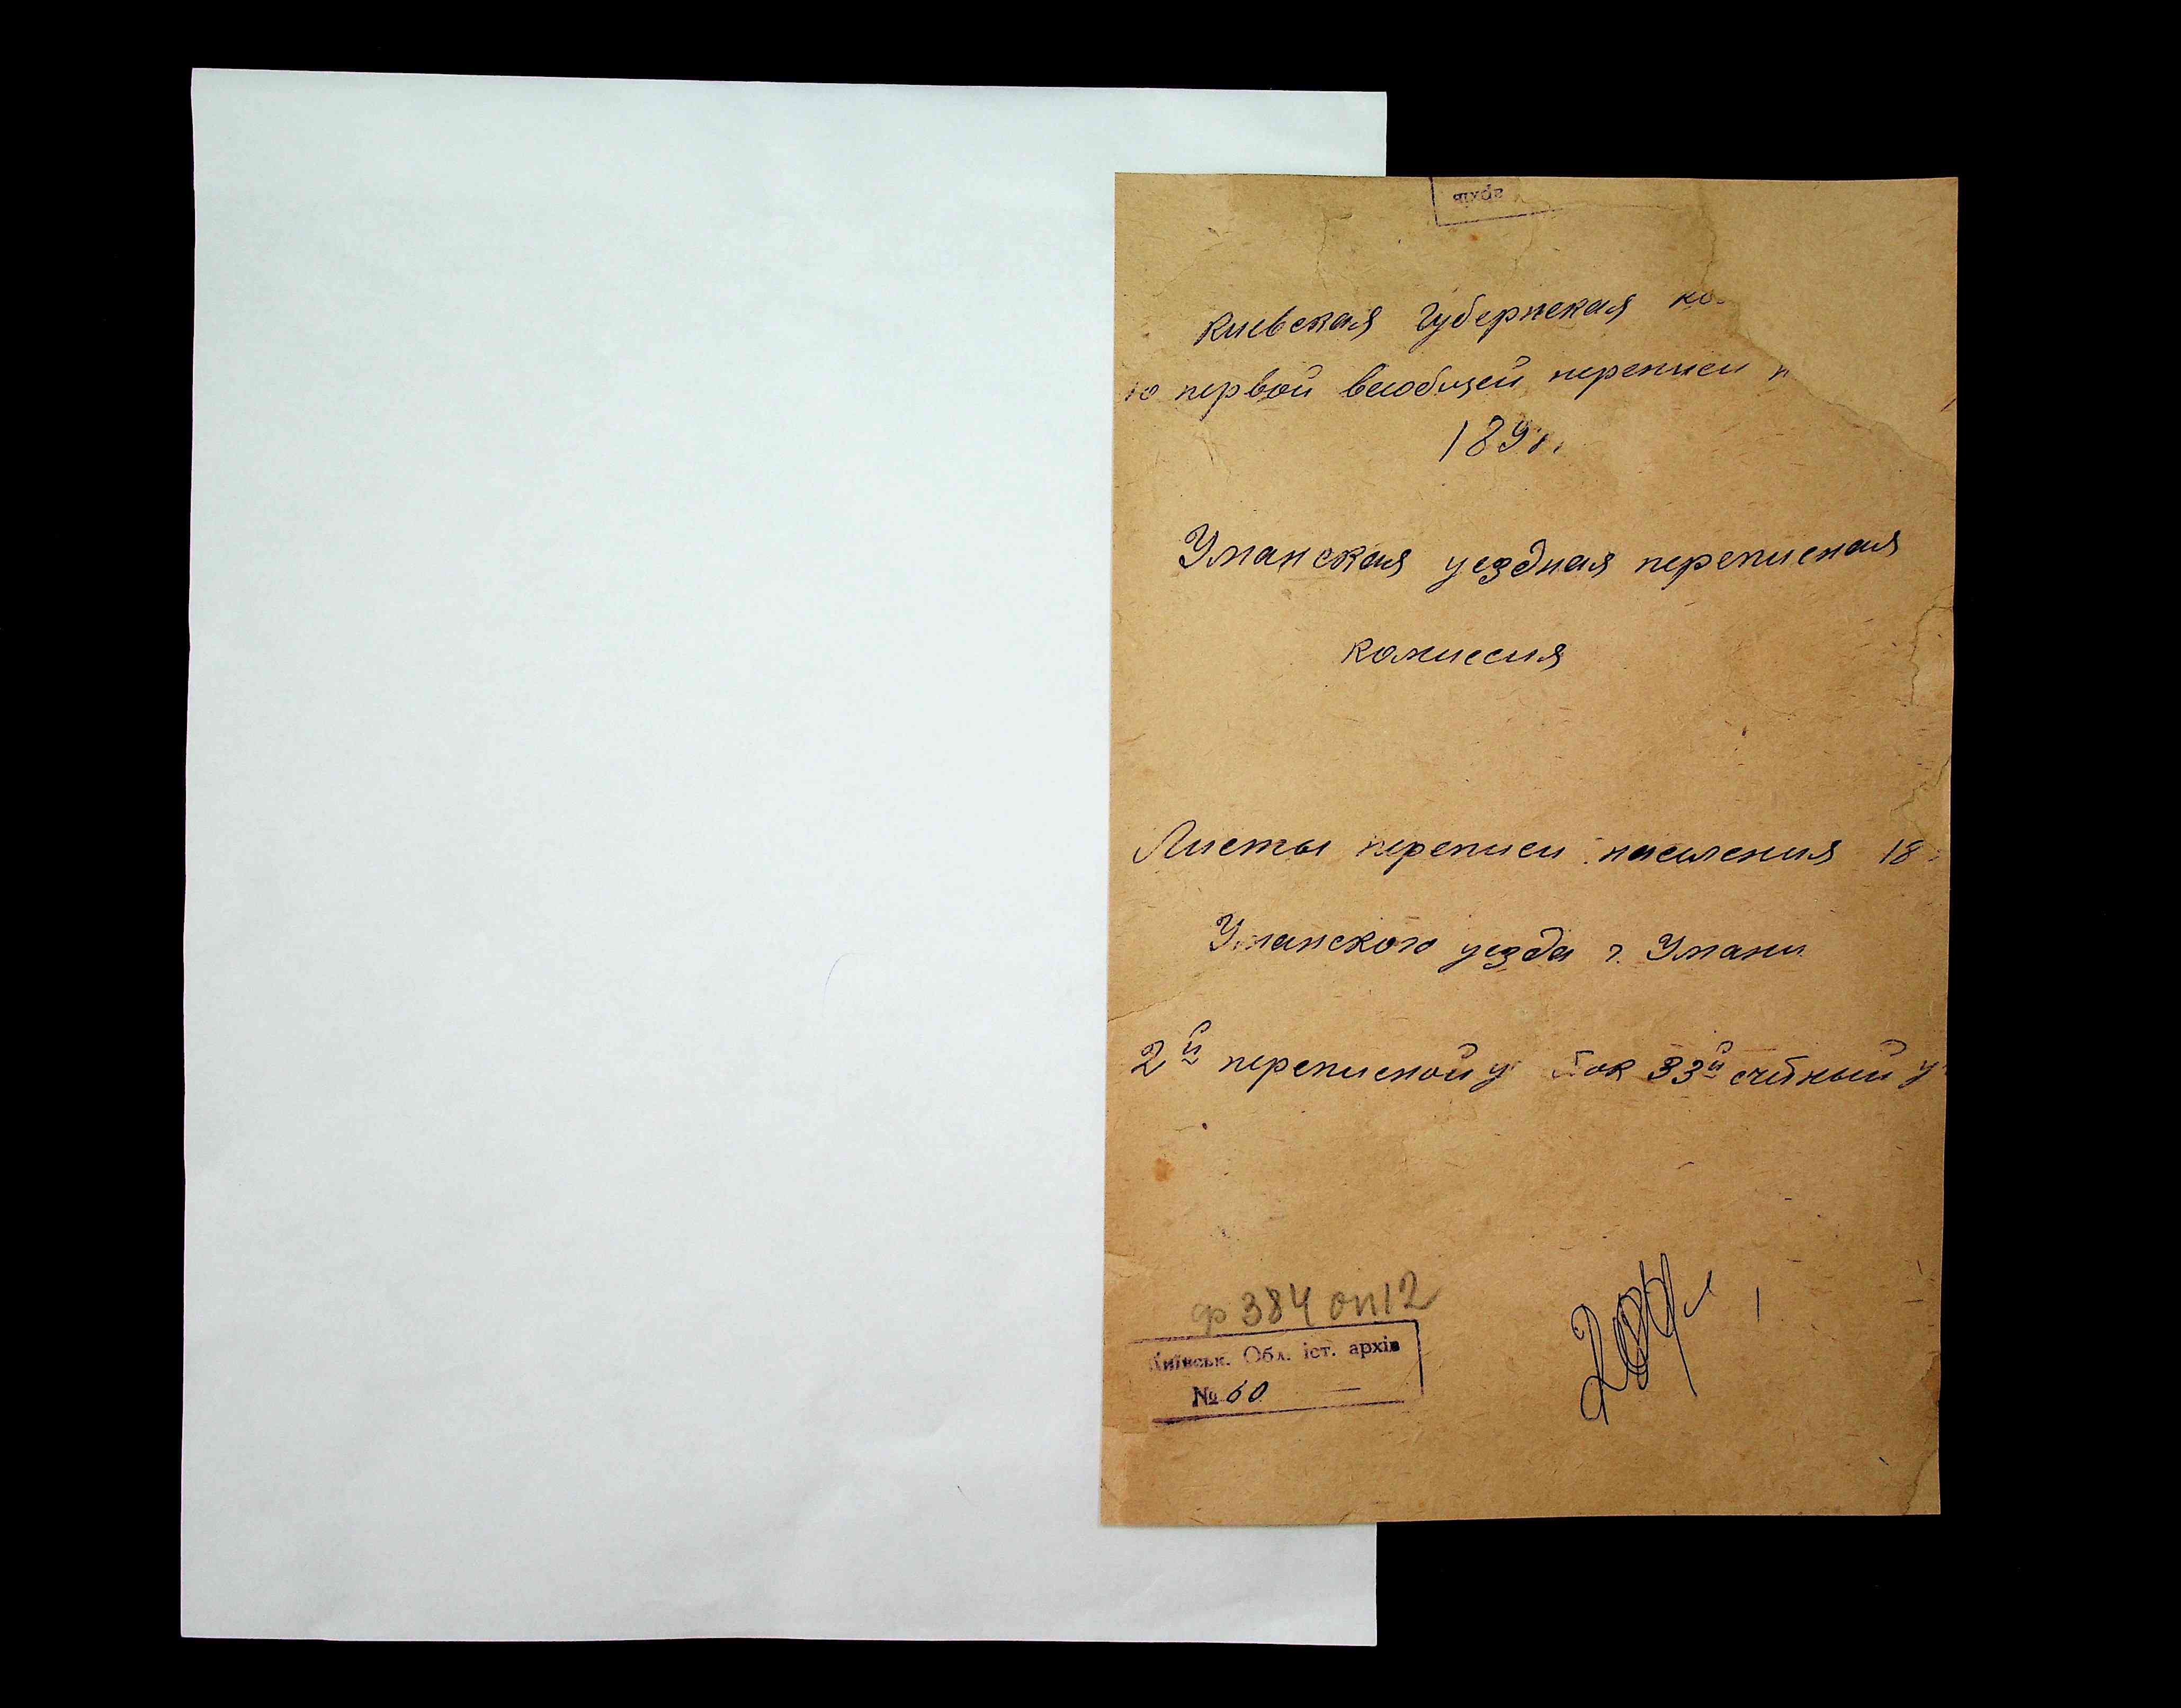 архів
Киевская губернская ко
по первой всеобщей переписи н
189
Уманская уездная переписная
комиссия
Листы переписи населения 18
Уманского уезда г. Умани
2й переписной у ток 33й счётный у
ф 384 оп12
Київськ. Обл. іст. архів
№ 60